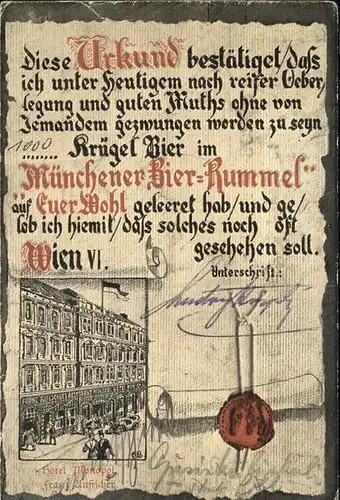 Diese Urkund bestätiget/daſs
ich unter Heutigem nach reifer Ueber,
legung und guten Muths ohne von
Jemandem gezwungen worden zu seyn
1000 Krügel Bier im
"Münchener Bier=Rummel"
auf Euer Wohl geleeret hab/und ge/
lob ich hiemit/daſs solches noch oft
Wien VI. geschehen soll.
Unterschrift:
Hotel Monopol
Franz